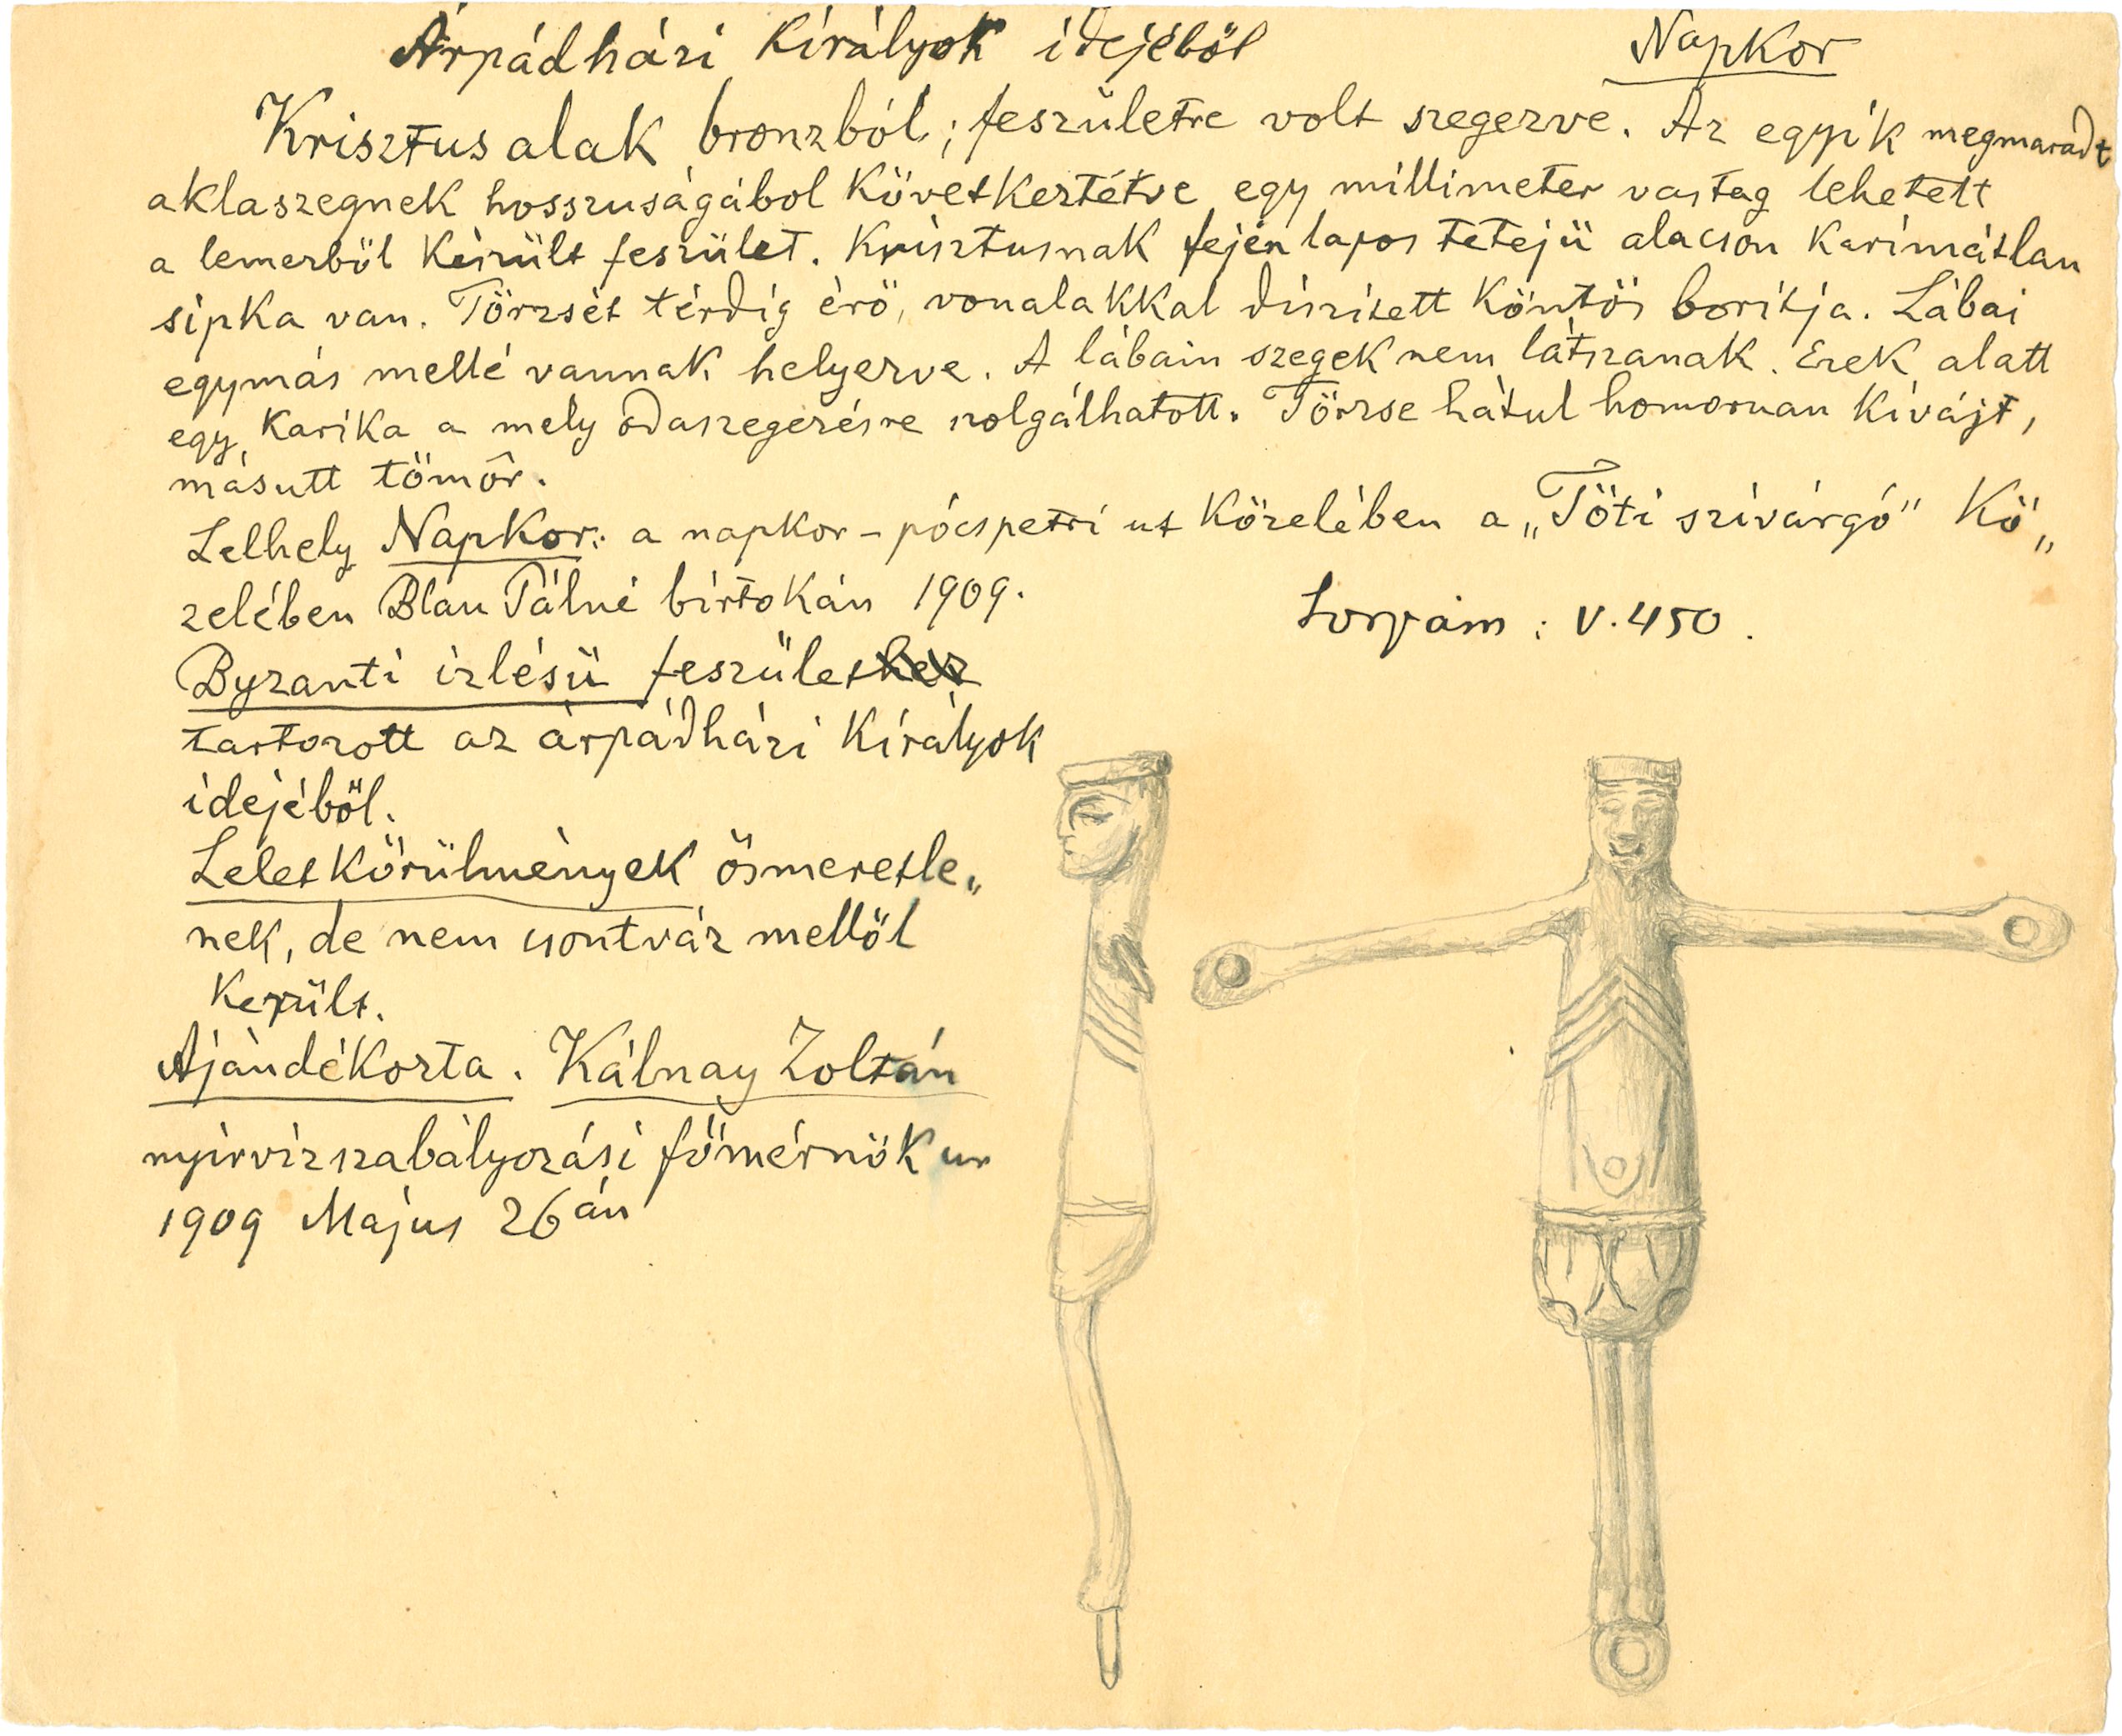 Árpádházi Királyok idejéből
Napkor
Krisztus alak bronzból; feszületre volt szegezve. Az egyik megmaradt
aklaszegnek hosszuságából következtétve egy millimeter vastag lehetett
a lemezből készült feszület. Krisztusnak fején lapos tetejü alacson karimátlan
sipka van. Törzsét térdig érő, vonalakkal diszitett köntös boritja. Lábai
egymás mellé vannak helyezve. A lábain szegek nem látszanak. Ezek alatt
egy karika a mely odaszegezésre szolgálhatott. Törzse hátul homoruan kivájt,
másutt tömör.
Lelhely Napkor: a napkor-pócspetri ut közelében a „Töti szivárgó" kö„
zelében Blau Pálné birtokán 1909.
Sorszám: V.450.
Byzanti izlésü feszülethez
tartozott az árpádházi Királyok
idejéből.
Leletkörülmények ösmeretle„
nek, de nem csontváz mellől
került.
Ajándékozta. Kálnay Zoltán
nyirvizszabályozási főmérnök ur
1909 Május 26án